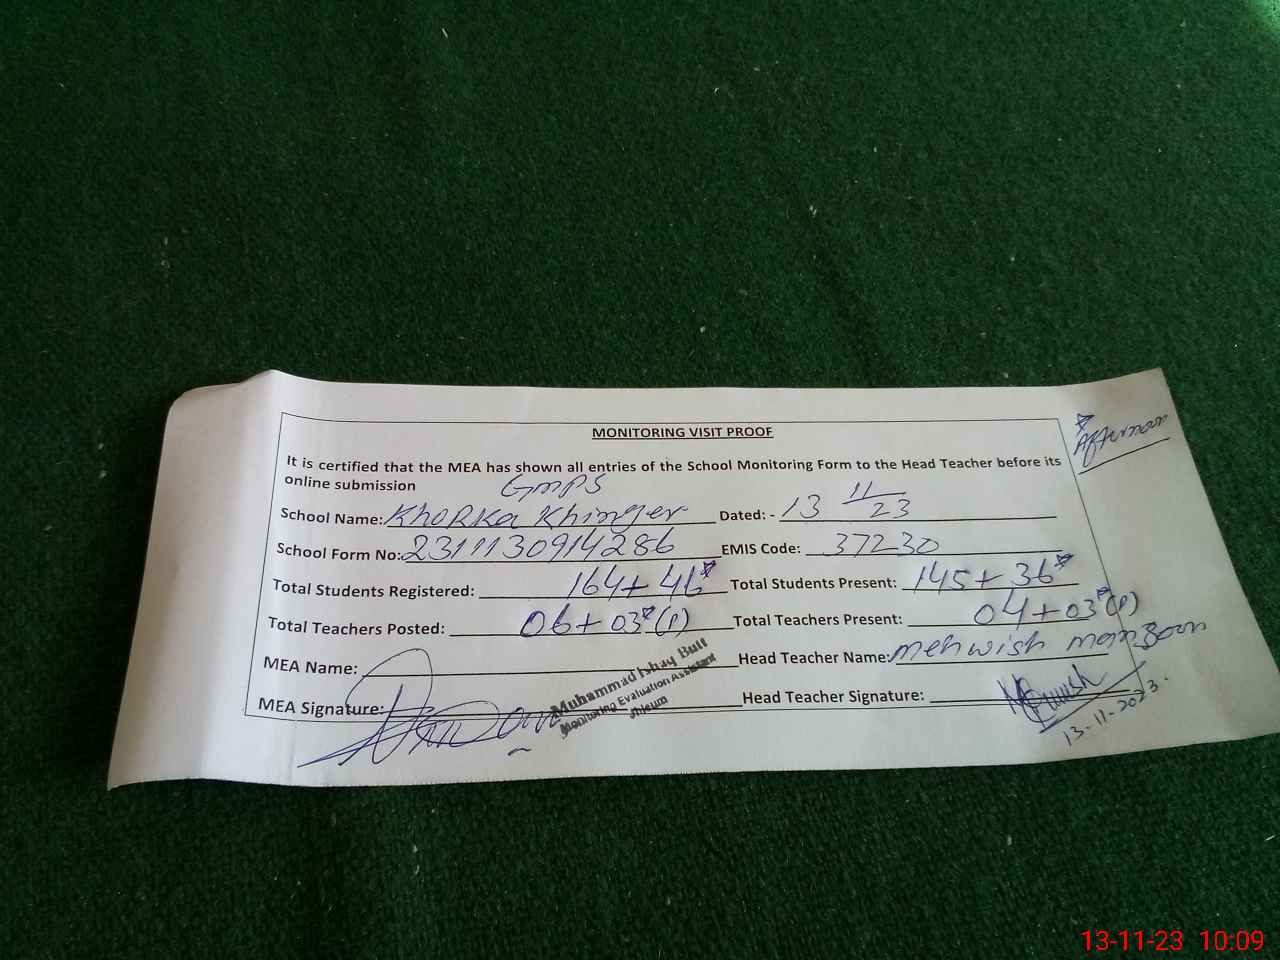 MONITORING VISIT PROOF
* Afternoon
It is certified that the MEA has shown all entries of the School Monitoring Form to the Head Teacher before its
online submission
GMPS
School Name: Khorka Khinger Dated: - 13 11/23
School Form No: 2311130914286 EMIS Code: 37230
Total Students Registered: 164+46* Total Students Present: 145+36*
Total Teachers Posted: 06+03*(P) Total Teachers Present: 04+03*(P)
MEA Name: Head Teacher Name: Mehwish
Muhammad Ishaq Butt
Monitoring Evaluation Assistant
Jhleum
MEA Signature: Head Teacher Signature:
13-11-2023.
13-11-23 10:09